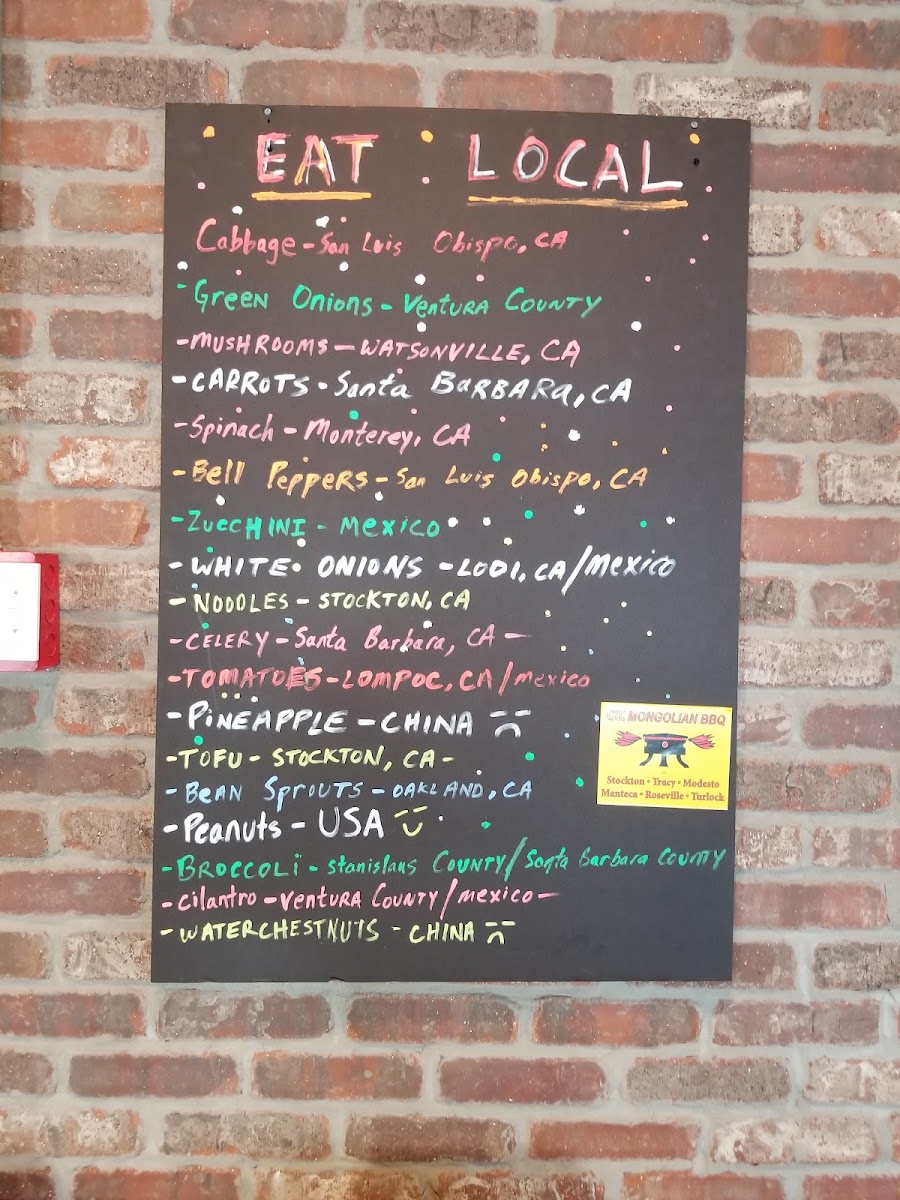 EAT LOCAL
Cabbage - San Luis Obispo, CA
- Green Onions - Ventura County
- MUSHROOMS - WATSONVILLE, CA
- CARROTS - Santa BARBARA, CA
- Spinach - Monterey, CA
- Bell Peppers - San Luis Obispo, CA
- Zucchini - Mexico
- WHITE ONIONS - LODI, CA/Mexico
- NOODLES - STOCKTON, CA
- CELERY - Santa Barbara, CA -
- TOMATOES - LOMPOC, CA/mexico
- PINEAPPLE - CHINA
- TOFU - STOCKTON, CA -
- Bean Sprouts - OAKLAND, CA
- Peanuts - USA
- BROCCOLi - Stanislaus COUNTY/Santa Barbara COUNTY
- cilantro - Ventura County/mexico -
- WATERCHESTNUTS - CHINA
MONGOLIAN BBQ
Stockton • Tracy • Modesto
Manteca • Roseville • Turlock